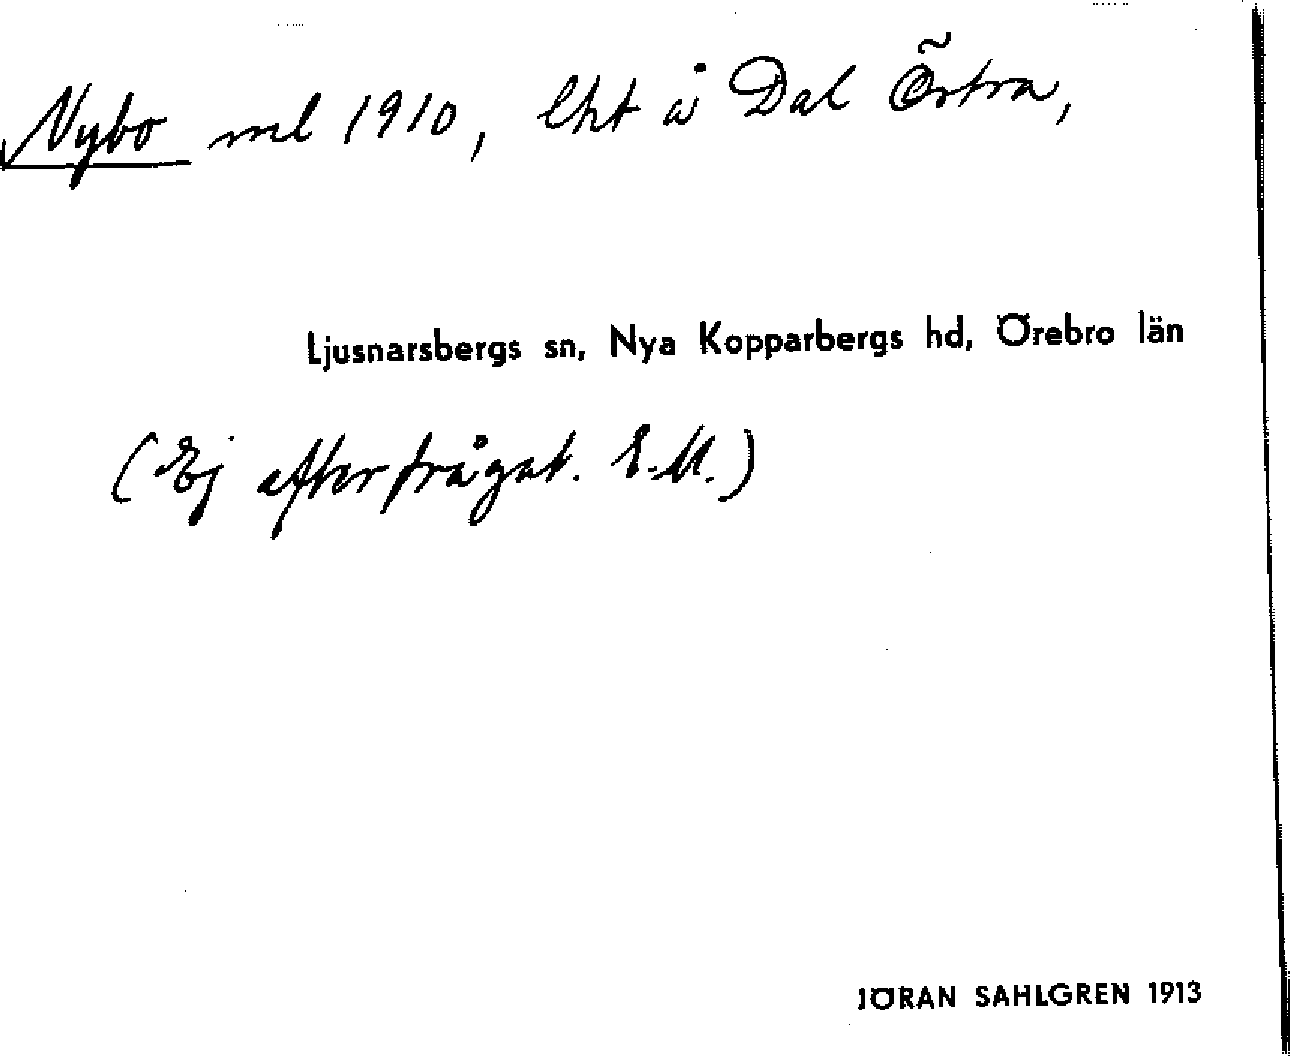 Nybo ml 1910, lht å Dal Östra,
Ljusnarsbergs sn, Nya Kopparbergs hd, Örebro län
(Ej efterfrågat. E.M.)
JÖRAN SAHLGREN 1913